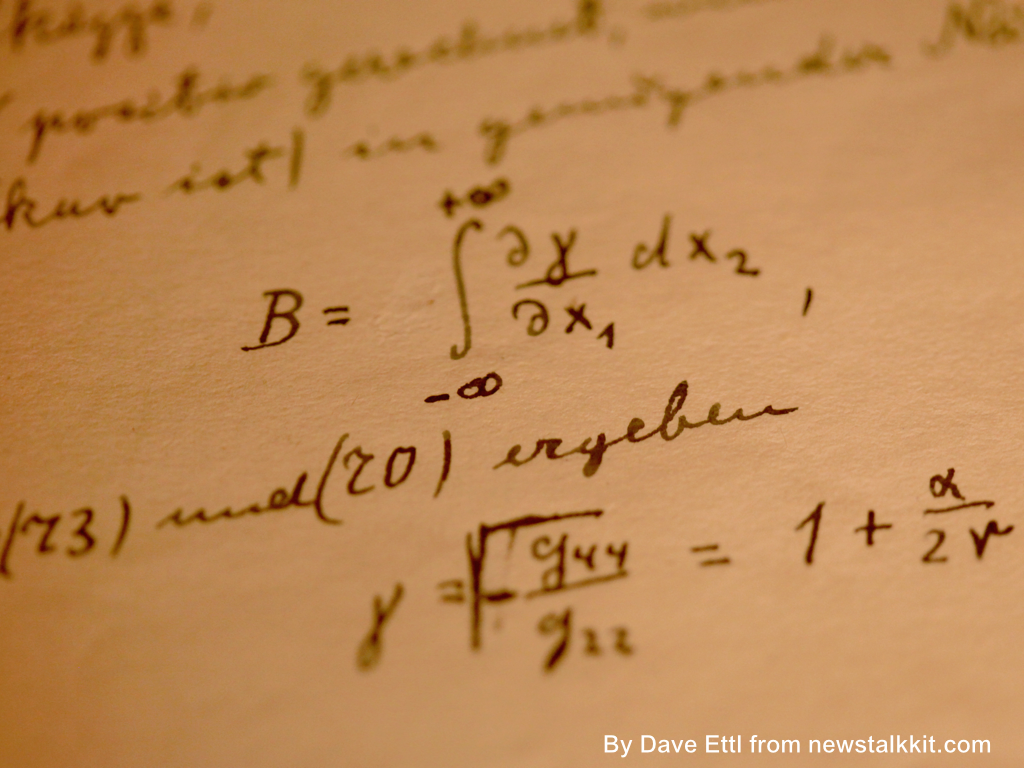 positiv gerechnet,
ist) in genügender
B = ∫_{-∞}^{+∞} ∂γ/∂x₁ dx₂ ,
(73) und (70) ergeben
γ = √(- g₄₄/g₂₂) = 1 + α/2r
By Dave Ettl from newstalkkit.com